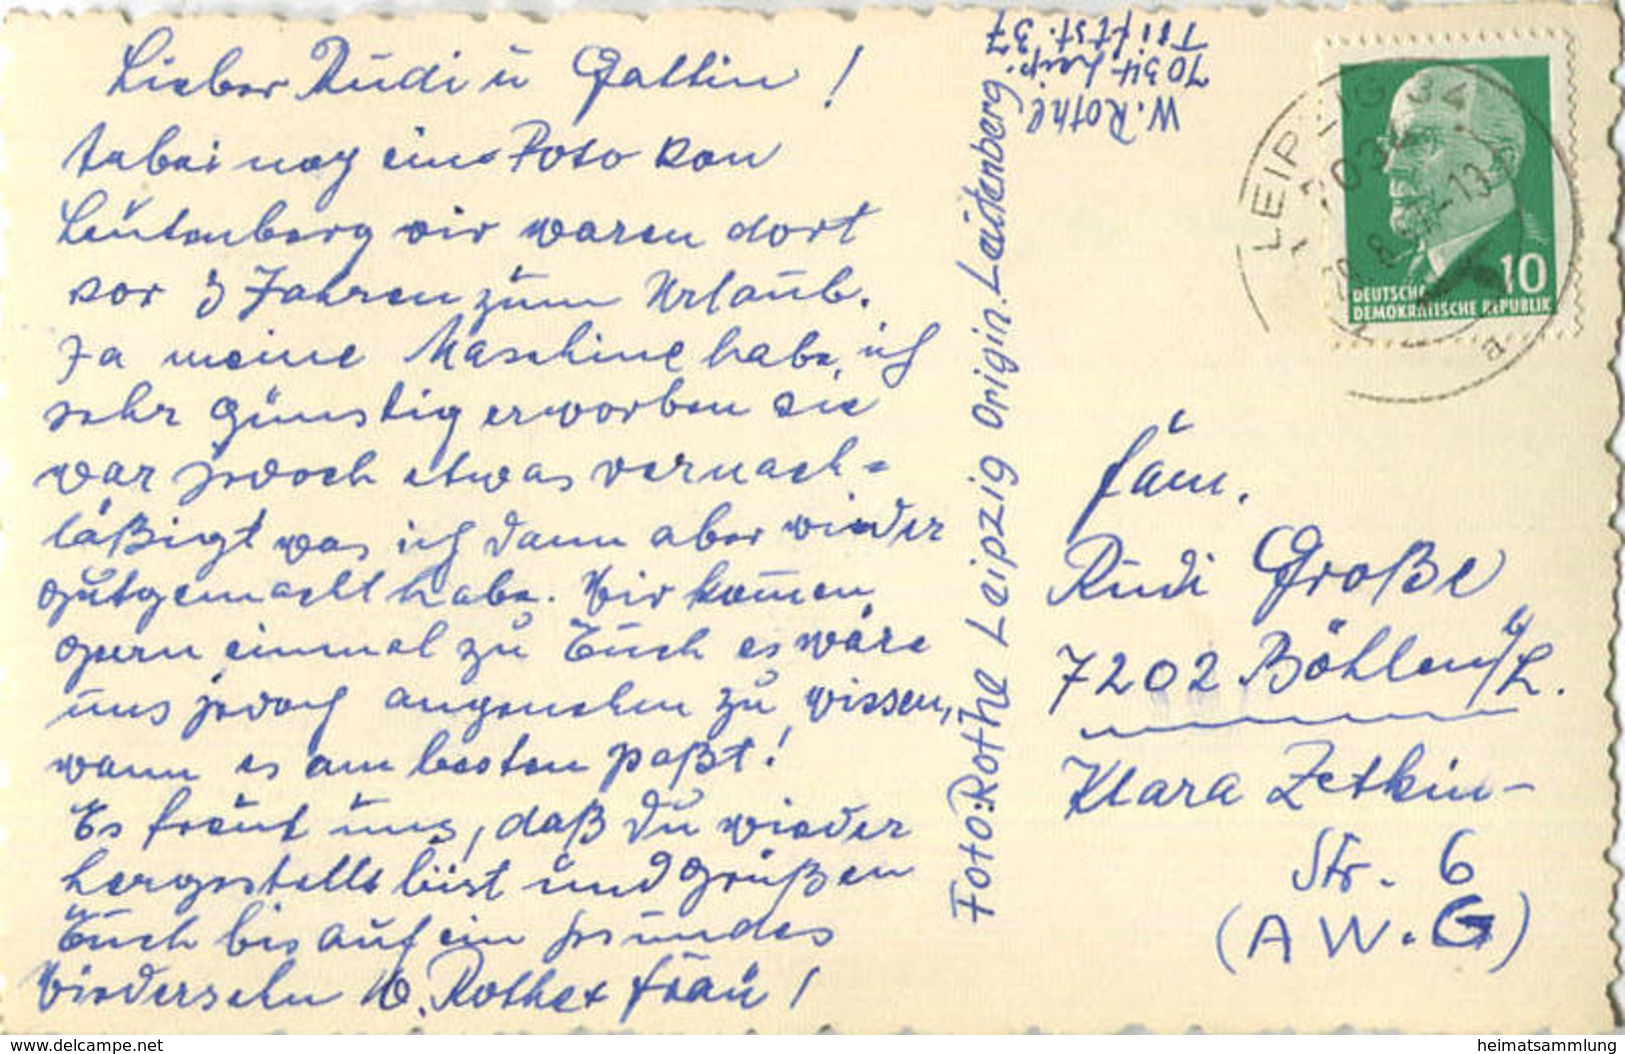 Lieber Rudi u Gattin !
Anbei noch eine Foto von
Leutenberg wir waren dort
vor 3 Jahren zum Urlaub.
Ja meine Maschine habe, ich
sehr günstig erworben sie
war jedoch etwas vernach-
läßigt was ich dann aber wieder
gutgemacht habe. Wir kommen
gern einmal zu Euch es wäre
uns jedoch angenehm zu wissen,
wann es am besten paßt!
Es freut uns, daß Du wieder
hergestellt bist und grüßen
Euch bis auf ein gesundes
Wiedersehn W. Rothe + Frau !
Foto: Rothe Leipzig Origin. Leutenberg
W. Rothe
7034 Leip.
37
LEIPZIG 34
7034
28.8.-13
a
10
DEUTSCHE
DEMOKRATISCHE REPUBLIK
Fam.
Rudi Große
7202 Böhlen b/L.
Klara Zetkin-
Str. 6
(A W. G)
delcampe.net
heimatsammlung